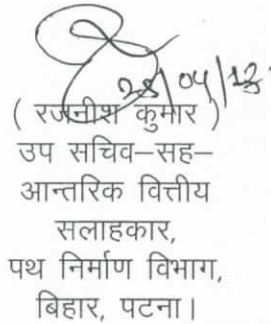 28/04/12
( रजनीश कुमार )
उप सचिव–सह–
आन्तरिक वित्तीय
सलाहकार,
पथ निर्माण विभाग,
बिहार, पटना।